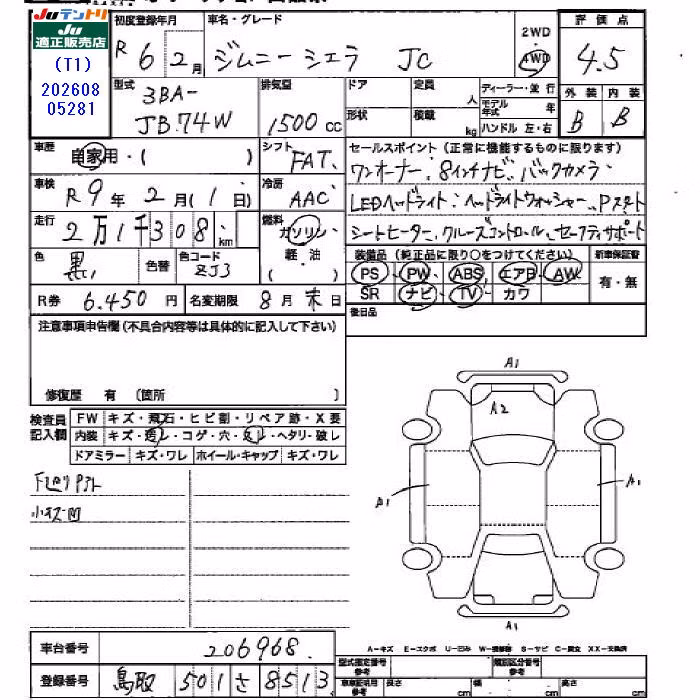 Juテントリ
Ju
適正販売店
(T1)
202608
05281
初度登録年月 車名・グレード 2WD 評価点
R6 2月 ジムニーシエラ JC 4WD 4.5
型式 排気量 ドア 定員 人 ディーラー・並行 外装 内装
3BA-
JB74W 1500cc 形状 積載 kg モデル年式 年 ハンドル 左・右 B B
車歴 自家用・( ) シフト FAT セールスポイント(正常に機能するものに限ります)
ワンオーナー、8インチナビ、バックカメラ
車検 R9年2月(1日) 冷房 AAC LEDヘッドライト、ヘッドライトウォッシャー、Pスタート
走行 2万1千308km 燃料 ガソリン シートヒーター、クルーズコントロール、セーフティサポート
軽・油
( )
色 黒 色替 色コード ZJ3 装備品(純正品に限り○をつけてください) 新車保証書
PS・PW・ABS・エアB・AW 有・無
R券 6,450円 名変期限 8月末日 SR ナビ・TV・カワ
注意事項申告欄(不具合内容等は具体的に記入して下さい) 後日品
修復歴 有 〔箇所 〕
検査員
記入欄
FW キズ・飛石・ヒビ割・リペア跡・X要
内装 キズ・汚レ・コゲ・穴・スレ・ヘタリ・破レ
ドアミラー キズ・ワレ ホイール・キャップ キズ・ワレ
下廻りサビ
小キズ凹
A1
A2
A1
A1
A1
車台番号 206968
A−キズ E−エクボ U−凹み W−補修跡 S−サビ C−腐食 XX−交換済
型式指定番号 参考 類別区分番号 参考
登録番号 鳥取 501 さ 8513
車庫証明用 参考 長さ cm 幅 cm 高さ cm